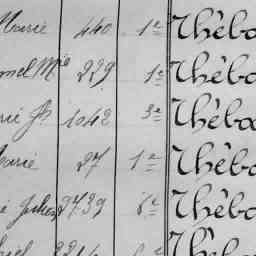 Marie 440 1e Thébo
el Mie 229 1e Thébo
rie Jh 1042 3e Thébo
arie 27 1e Thébo
Julien 2739 6e Thébo